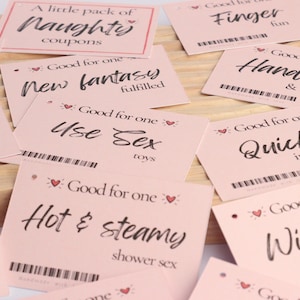 A little pack of
Naughty
coupons
Good for one
Finger
fun
Good for one
New fantasy
fulfilled
Good for one
Hand
&
Good for one
Use Sex
toys
Good for one
Quick
Good for one
Hot & steamy
shower sex
Good for one
Wi
Good for one
Good for one